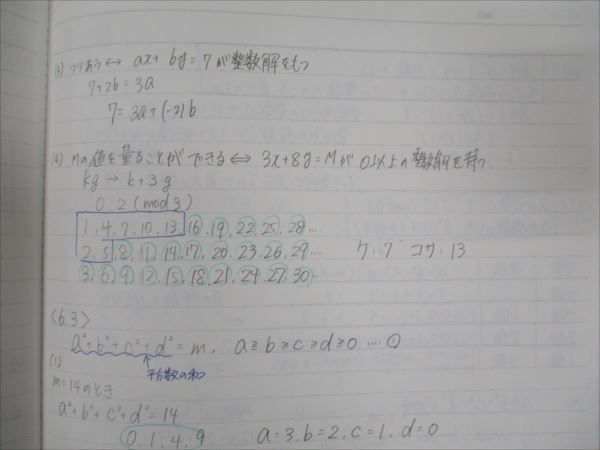 (3) つりあう ⟺ ax + by = 7 が整数解をもつ
7+2b = 3a
7 = 3a + (-2)b
(4) Mの値を量ることができる ⟺ 3x+8y=Mが 0以上の整数解を持つ
kg → k+3g
0, 2 (mod3)
1, 4, 7, 10, 13, 16, 19, 22, 25, 28 ....
2, 5, 8, 11, 14, 17, 20, 23, 26, 29 ....
ケ:7 コサ:13
3, 6, 9, 12, 15, 18, 21, 24, 27, 30 ....
<6.3>
a²+b²+c²+d² = m, a≧b≧c≧d≧0 ....①
平方数の和
(1)
m=14のとき
a²+b²+c²+d² = 14
0, 1, 4, 9 a=3, b=2, c=1, d=0